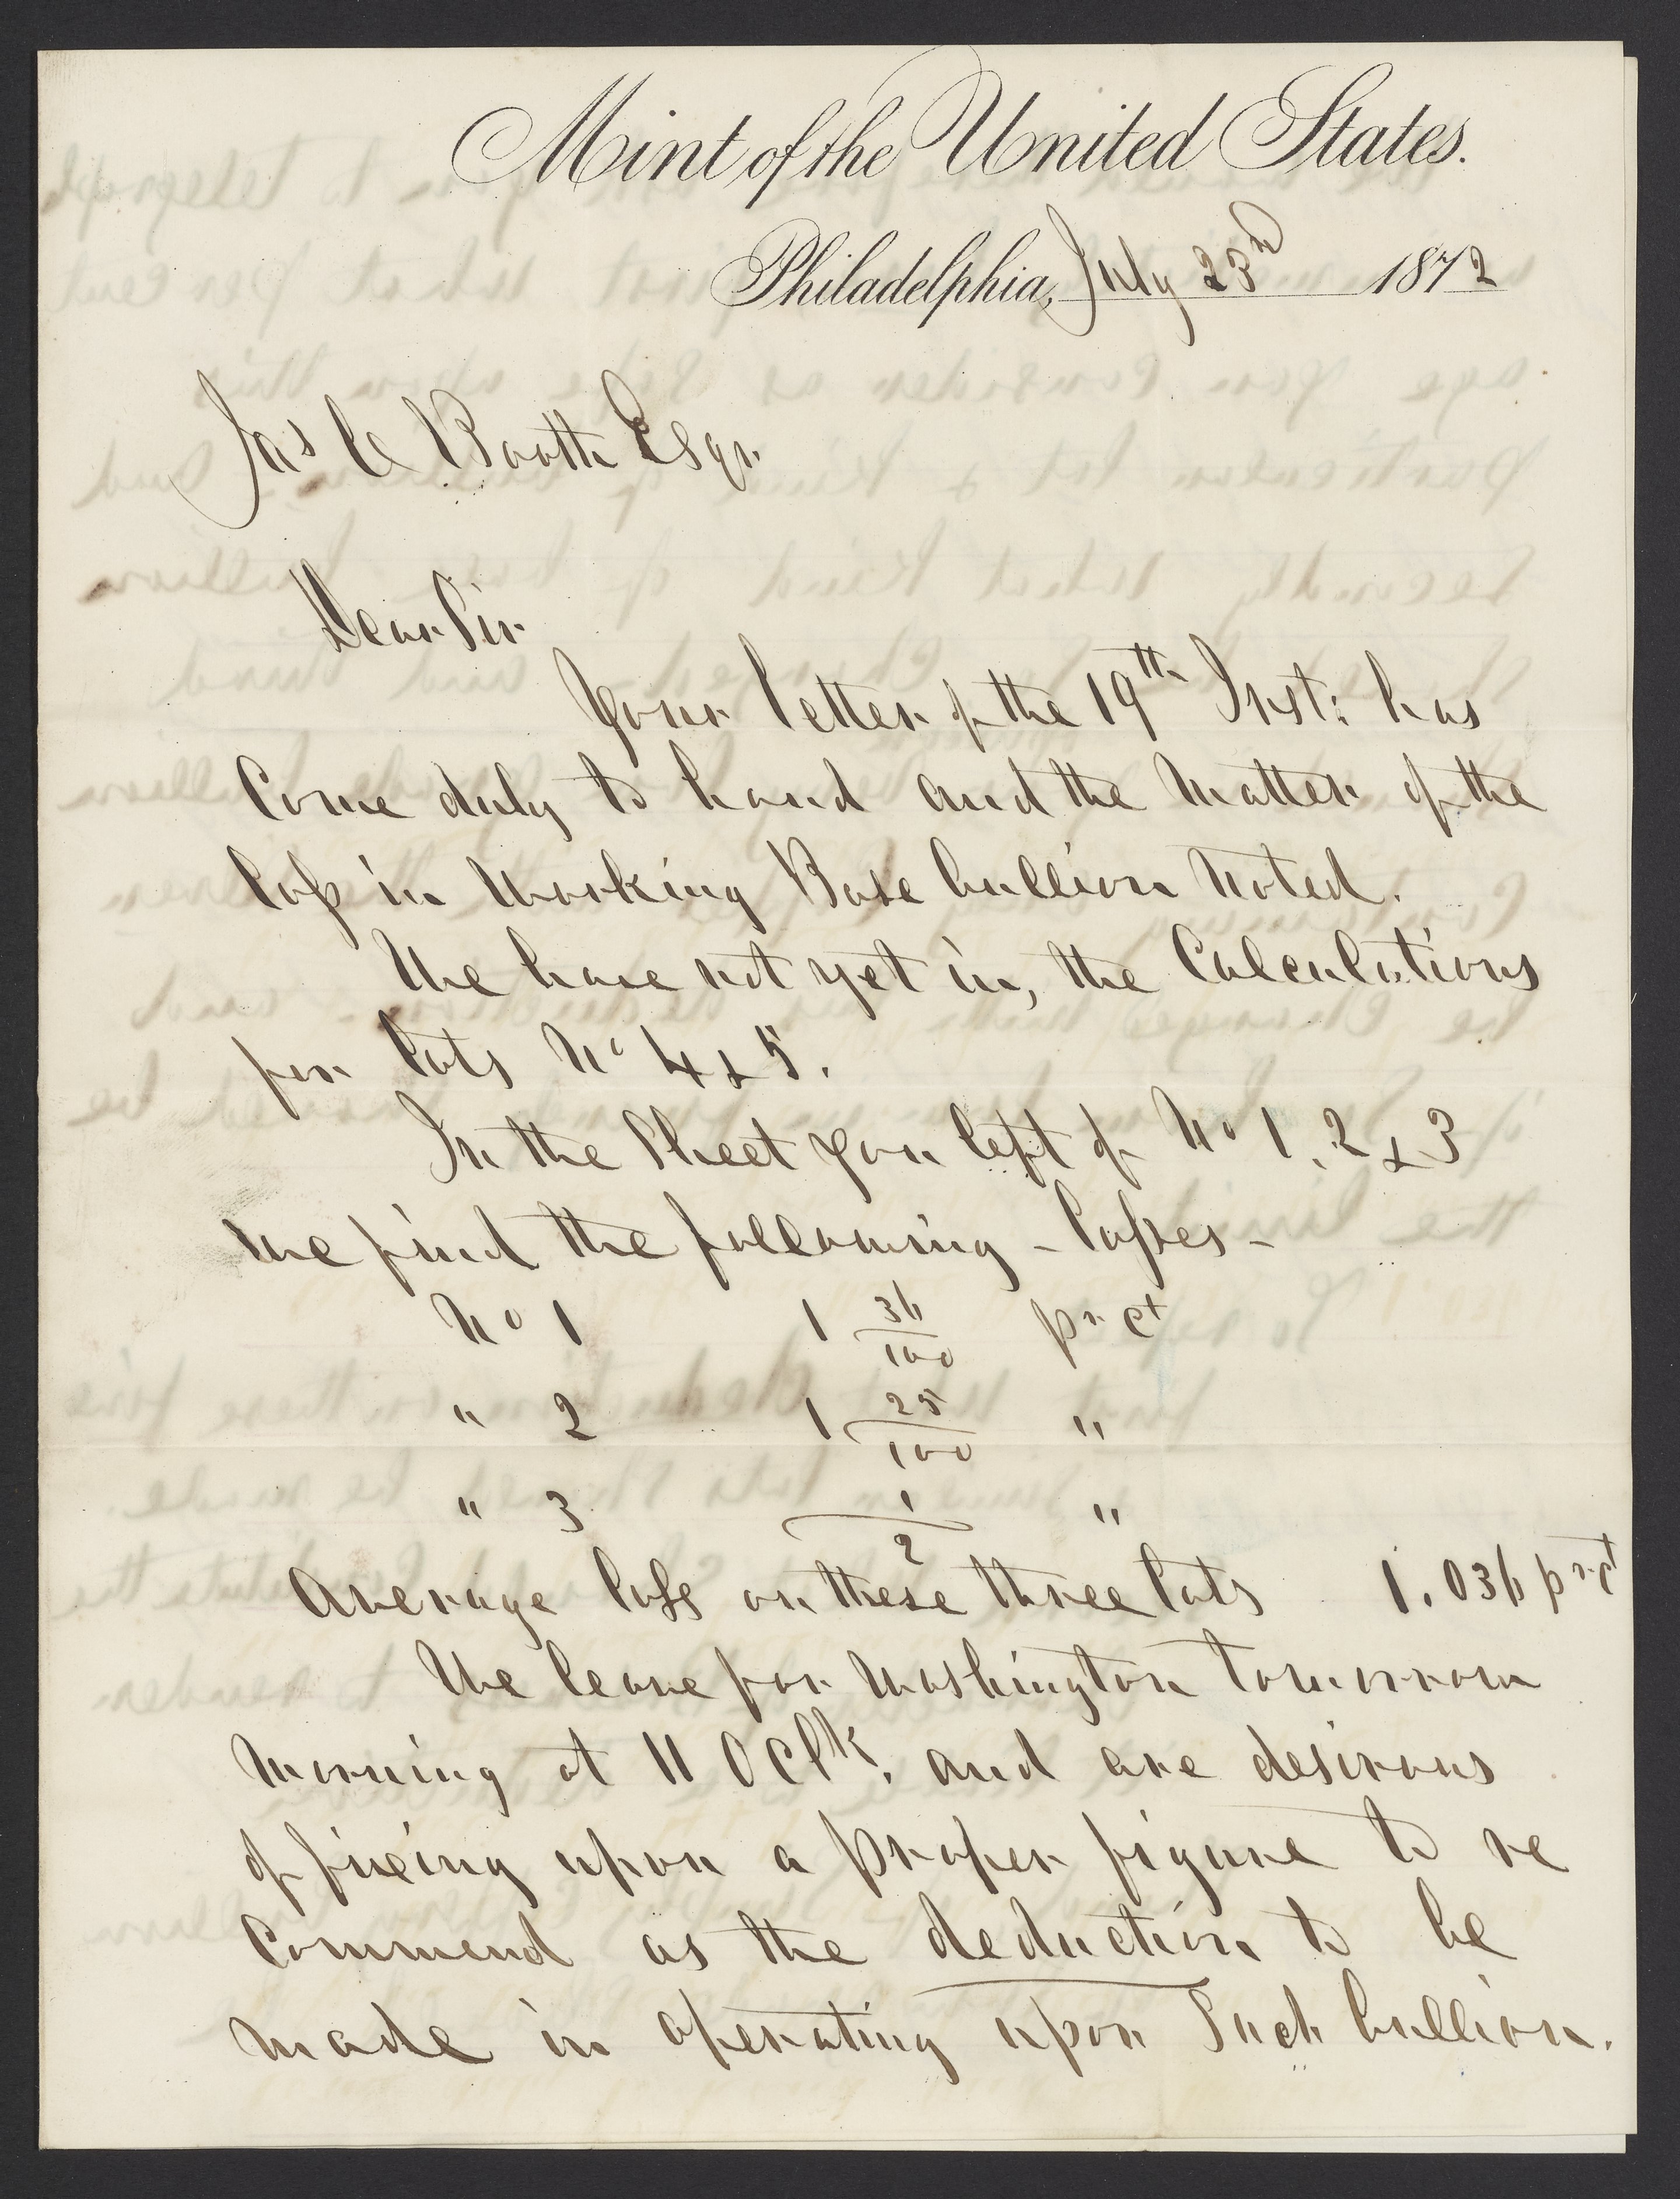 Mint of the United States.
Philadelphia, July 23d 1872
Jas C Booth Esqr
Dear Sir
Your letter of the 19th Inst: has
Come duly to hand and the Matter of the
loss in Working Base bullion Noted.
We have not yet in, the Calculations
for lots No 4 & 5.
In the Sheet you left of No 1, 2 & 3
we find the following - losses -
No 1 1 36/100 pr ct
" 2 1 25/100 "
" 3 1/2 "
Average loss on these three lots 1.036 pr ct
We leave for Washington tomorrow
Morning at 11 OClk, and are desirous
of fixing upon a proper figure to re
Commend as the deduction to be
made in operating upon Such bullion.